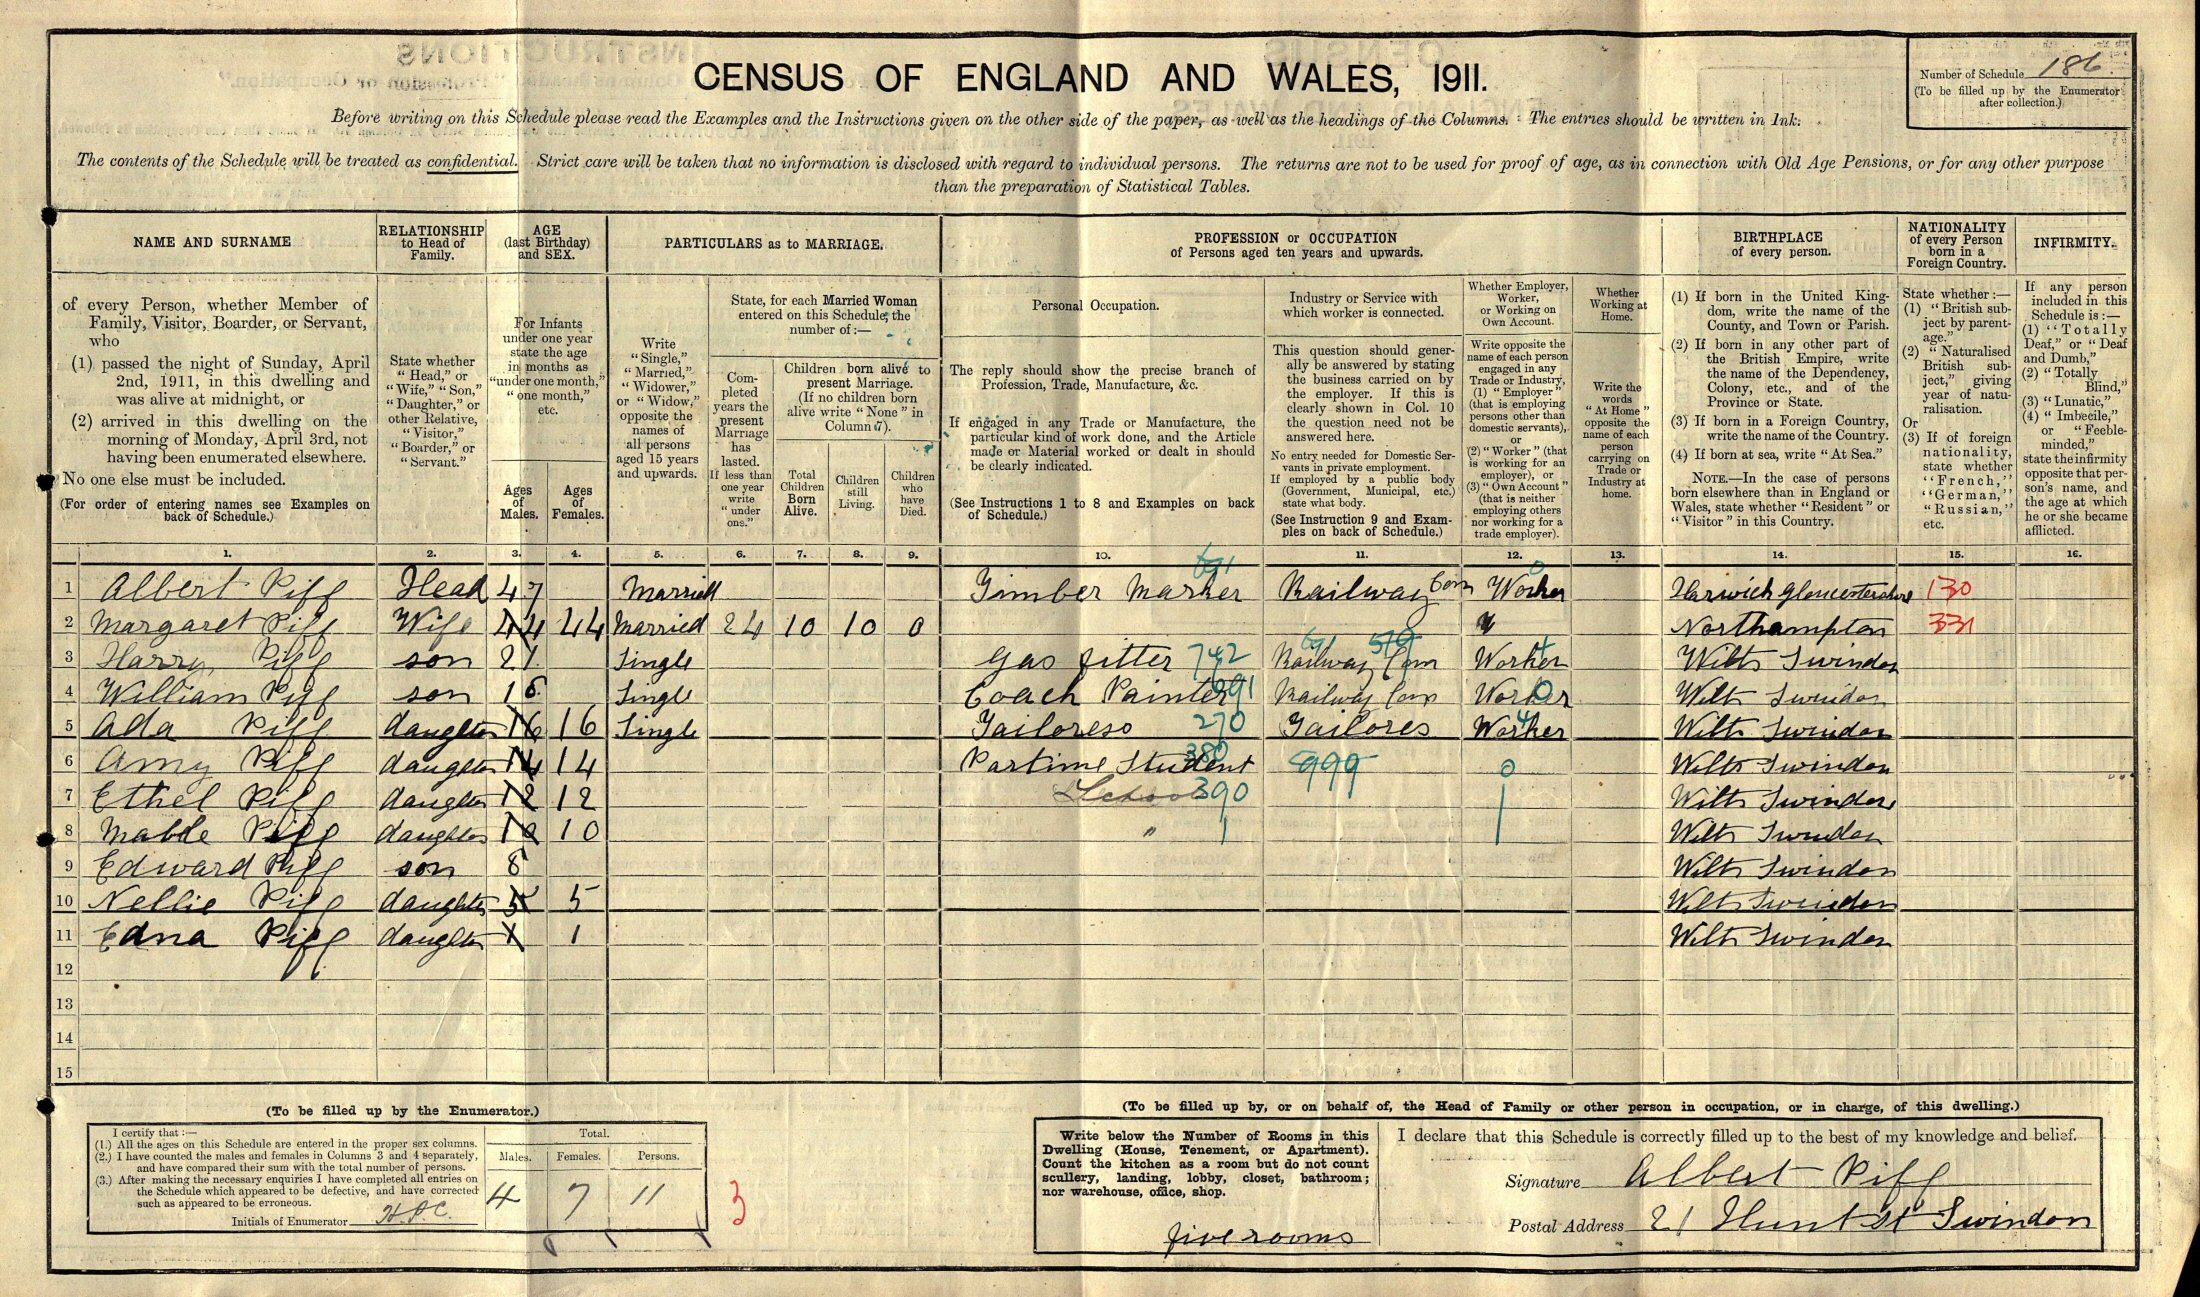 CENSUS OF ENGLAND AND WALES, 1911.
Number of Schedule 186.
(To be filled up by the Enumerator after collection.)
Before writing on this Schedule please read the Examples and the Instructions given on the other side of the paper, as well as the headings of the Columns. The entries should be written in Ink.
The contents of the Schedule will be treated as confidential. Strict care will be taken that no information is disclosed with regard to individual persons. The returns are not to be used for proof of age, as in connection with Old Age Pensions, or for any other purpose
than the preparation of Statistical Tables.
NAME AND SURNAME
of every Person, whether Member of
Family, Visitor, Boarder, or Servant,
who
(1) passed the night of Sunday, April
2nd, 1911, in this dwelling and
was alive at midnight, or
(2) arrived in this dwelling on the
morning of Monday, April 3rd, not
having been enumerated elsewhere.
No one else must be included.
(For order of entering names see Examples on
back of Schedule.)
RELATIONSHIP
to Head of
Family.
State whether
"Head," or
"Wife," "Son,"
"Daughter," or
other Relative,
"Visitor,"
"Boarder," or
"Servant."
AGE
(last Birthday)
and SEX.
For Infants
under one year
state the age
in months as
"under one month,"
"one month,"
etc.
Ages
of
Males.
Ages
of
Females.
PARTICULARS as to MARRIAGE.
Write
"Single,"
"Married,"
"Widower,"
or "Widow,"
opposite the
names of
all persons
aged 15 years
and upwards.
State, for each Married Woman
entered on this Schedule, the
number of:—
Com-
pleted
years the
present
Marriage
has
lasted.
If less than
one year
write
"under
one."
Children born alive to
present Marriage.
(If no children born
alive write "None" in
Column 7).
Total
Children
Born
Alive.
Children
still
Living.
Children
who
have
Died.
PROFESSION or OCCUPATION
of Persons aged ten years and upwards.
Personal Occupation.
The reply should show the precise branch of
Profession, Trade, Manufacture, &c.
If engaged in any Trade or Manufacture, the
particular kind of work done, and the Article
made or Material worked or dealt in should
be clearly indicated.
(See Instructions 1 to 8 and Examples on back
of Schedule.)
Industry or Service with
which worker is connected.
This question should gener-
ally be answered by stating
the business carried on by
the employer. If this is
clearly shown in Col. 10
the question need not be
answered here.
No entry needed for Domestic Ser-
vants in private employment.
If employed by a public body
(Government, Municipal, etc.)
state what body.
(See Instruction 9 and Exam-
ples on back of Schedule.)
Whether Employer,
Worker,
or Working on
Own Account.
Write opposite the
name of each person
engaged in any
Trade or Industry,
(1) "Employer"
(that is employing
persons other than
domestic servants),
or
(2) "Worker" (that
is working for an
employer), or
(3) "Own Account"
(that is neither
employing others
nor working for a
trade employer).
Whether
Working at
Home.
Write the
words
"At Home"
opposite the
name of each
person
carrying on
Trade or
Industry at
home.
BIRTHPLACE
of every person.
(1) If born in the United King-
dom, write the name of the
County, and Town or Parish.
(2) If born in any other part of
the British Empire, write
the name of the Dependency,
Colony, etc., and of the
Province or State.
(3) If born in a Foreign Country,
write the name of the Country.
(4) If born at sea, write "At Sea."
NOTE.—In the case of persons
born elsewhere than in England or
Wales, state whether "Resident" or
"Visitor" in this Country.
NATIONALITY
of every Person
born in a
Foreign Country.
State whether:—
(1) "British sub-
ject by parent-
age."
(2) "Naturalised
British sub-
ject," giving
year of natu-
ralisation.
Or
(3) If of foreign
nationality,
state whether
"French,"
"German,"
"Russian,"
etc.
INFIRMITY.
If any person
included in this
Schedule is:—
(1) "Totally
Deaf," or "Deaf
and Dumb,"
(2) "Totally
Blind,"
(3) "Lunatic,"
(4) "Imbecile,"
or "Feeble-
minded,"
state the infirmity
opposite that per-
son's name, and
the age at which
he or she became
afflicted.
1. 2. 3. 4. 5. 6. 7. 8. 9. 10. 11. 12. 13. 14. 15. 16.
1 Albert Piff Head 47 Married Timber Marker 691 Railway Com Worker 0 Harwich Gloucestershire 130
2 Margaret Piff Wife 44 44 Married 24 10 10 0 Northampton 331
3 Harry Piff son 21 Single Gas fitter 742 Railway Com 691 Worker 4 Wilts Swindon
4 William Piff son Single Coach Painter 691 Railway Com Worker 0 Wilts Swindon
5 Ada Piff daughter 16 16 Single Tailoress 270 Tailores Worker 4 Wilts Swindon
6 Amy Piff daughter 14 14 Partime Student 380 999 0 Wilts Swindon
7 Ethel Piff daughter 12 12 School 390 Wilts Swindon
8 Mable Piff daughter 10 10 " Wilts Swindon
9 Edward Piff son 8 Wilts Swindon
10 Nellie Piff daughter 5 5 Wilts Swindon
11 Edna Piff daughter 1 1 Wilts Swindon
12
13
14
15
(To be filled up by the Enumerator.)
I certify that:—
(1.) All the ages on this Schedule are entered in the proper sex columns.
(2.) I have counted the males and females in Columns 3 and 4 separately,
and have compared their sum with the total number of persons.
(3.) After making the necessary enquiries I have completed all entries on
the Schedule which appeared to be defective, and have corrected
such as appeared to be erroneous.
Initials of Enumerator
Total.
Males. Females. Persons.
4 7 11
3
(To be filled up by, or on behalf of, the Head of Family or other person in occupation, or in charge, of this dwelling.)
Write below the Number of Rooms in this
Dwelling (House, Tenement, or Apartment).
Count the kitchen as a room but do not count
scullery, landing, lobby, closet, bathroom;
nor warehouse, office, shop.
five rooms
I declare that this Schedule is correctly filled up to the best of my knowledge and belief.
Signature Albert Piff
Postal Address 21 Hunt St Swindon